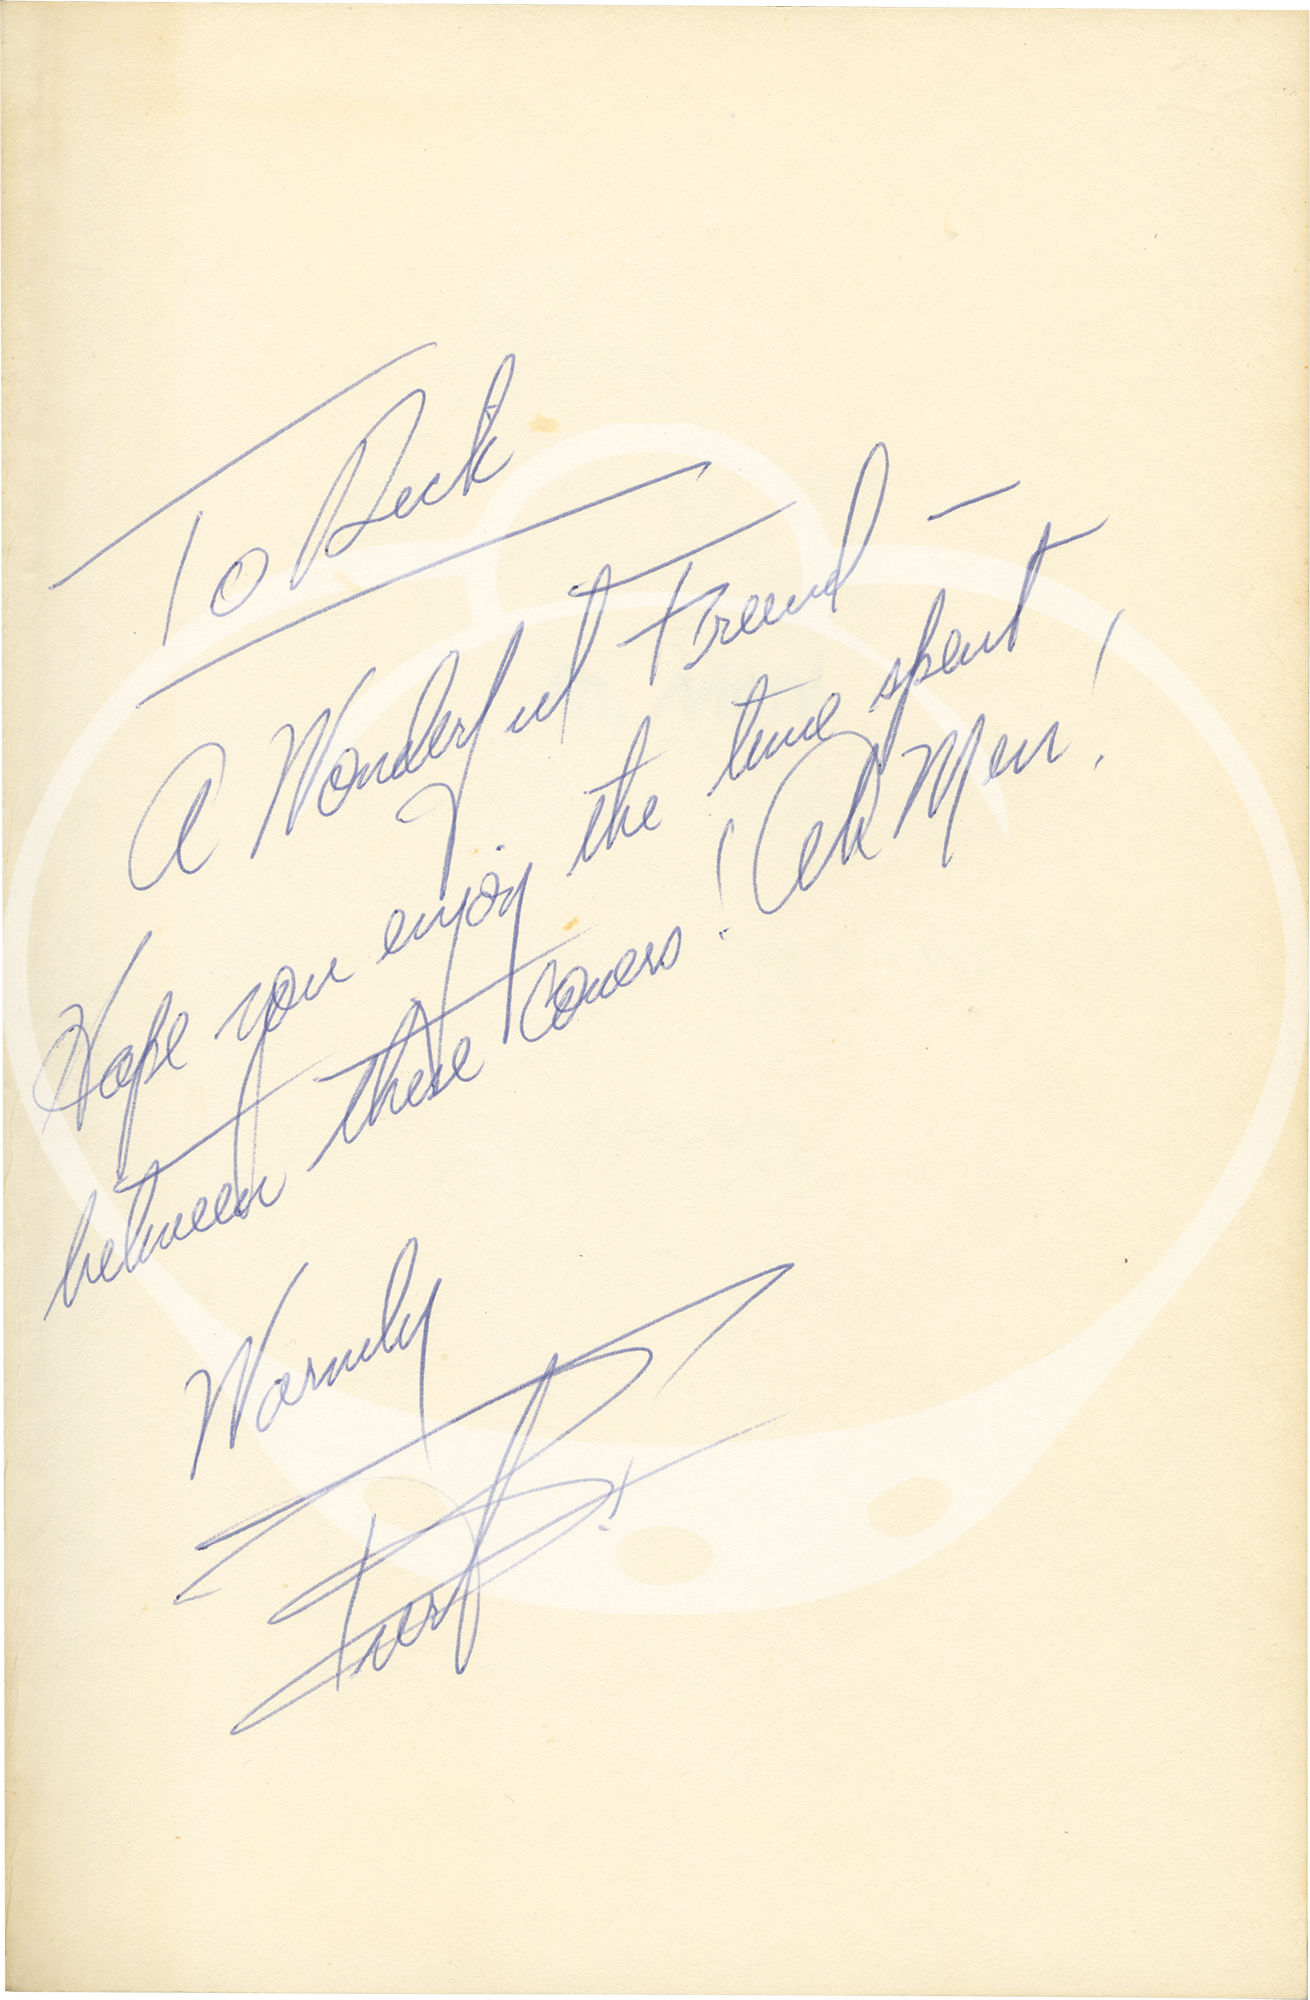 To Beck
A Wonderful Friend –
Hope you enjoy the time spent
between these covers! Ah Men!
Warmly